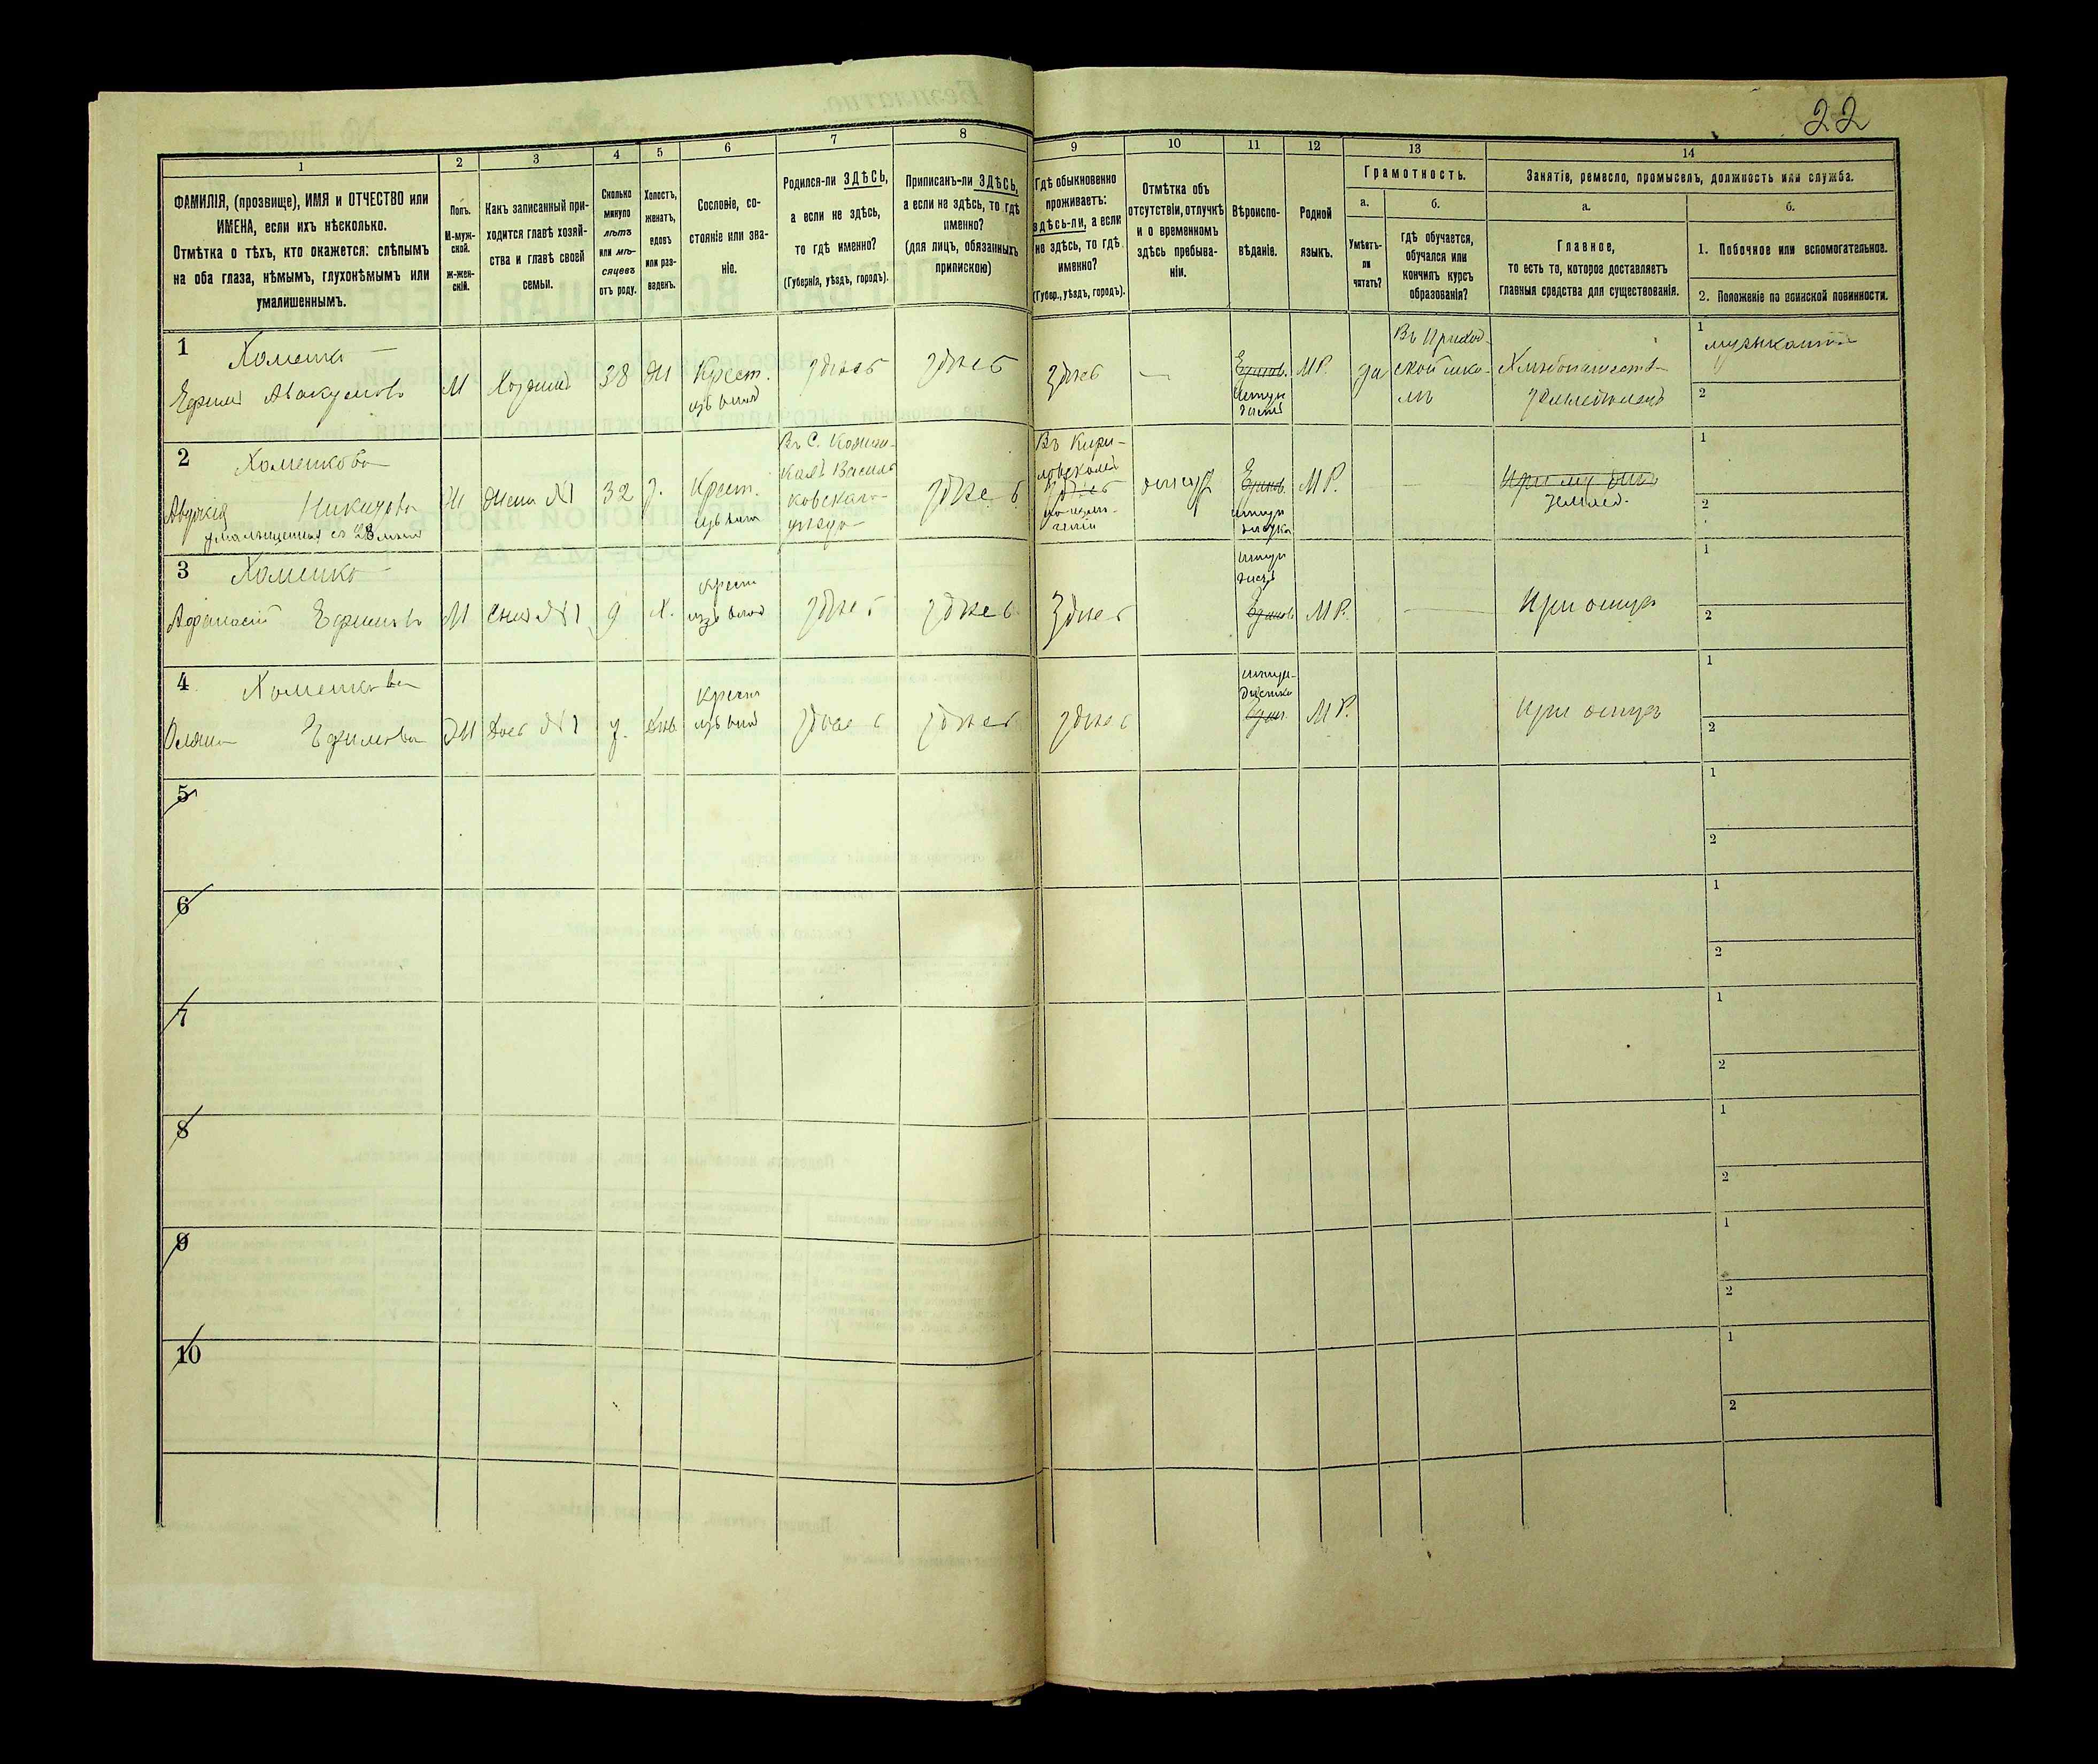 22
1
2
3
4
5
6
7
8
9
10
11
12
13
14
ФАМИЛІЯ, (прозвище), ИМЯ и ОТЧЕСТВО или
ИМЕНА, если ихъ нѣсколько.
Отмѣтка о тѣхъ, кто окажется: слѣпымъ
на оба глаза, нѣмымъ, глухонѣмымъ или
умалишеннымъ.
Полъ.
М-муж-
ской.
ж-жен-
скій.
Какъ записанный при-
ходится главѣ хозяй-
ства и главѣ своей
семьи.
Сколько
минуло
лѣтъ
или мѣ-
сяцевъ
отъ роду.
Холостъ,
женатъ,
вдовъ
или раз-
веденъ.
Сословіе, со-
стояніе или зва-
ніе.
Родился-ли ЗДѢСЬ,
а если не здѣсь,
то гдѣ именно?
(Губернія, уѣздъ, городъ).
Приписанъ-ли ЗДѢСЬ,
а если не здѣсь, то гдѣ
именно?
(для лицъ, обязанныхъ
припискою)
Гдѣ обыкновенно
проживаетъ:
здѣсь-ли, а если
не здѣсь, то гдѣ
именно?
(Губер., уѣздъ, городъ).
Отмѣтка объ
отсутствіи, отлучкѣ
и о временномъ
здѣсь пребыва-
ніи.
Вѣроиспо-
вѣданіе.
Родной
языкъ.
Грамотность.
а.
Умѣетъ-
ли
читать?
б.
гдѣ обучается,
обучался или
кончилъ курсъ
образованія?
Занятіе, ремесло, промыселъ, должность или служба.
а.
Главное,
то есть то, которое доставляетъ
главныя средства для существованія.
б.
1. Побочное или вспомогательное.
2. Положеніе по воинской повинности.
1
Хоменко
Ефимъ Авакумовъ
М
Хозяинъ
38
Ж
Крест.
изъ влад
здѣсь
здѣсь
здѣсь
—
М Р.
да
Въ Приход-
ской шко-
лѣ
1
2
2
Хоменкова
Авдокія Никитова
умалишенная съ 28 лѣтъ
Ж
Жена №1
32
З.
Крест.
изъ влад
Въ С.
ковскаго
уѣзда
здѣсь
Въ Кири-
ловскомъ
здѣсь
М Р.
—
землед.
1
2
3
Хоменко
Афанасій Ефимовъ
М
Сынъ №1
9
Х.
Крест
изъ влад
здѣсь
здѣсь
здѣсь
М Р.
—
При отцѣ
1
2
4
Хоменкова
Ефимова
Ж
Дочь №1
7.
Дѣв
Крест
изъ влад
здѣсь
здѣсь
здѣсь
М Р.
при отцѣ
1
2
5
1
2
6
1
2
7
1
2
8
1
2
9
1
2
10
1
2